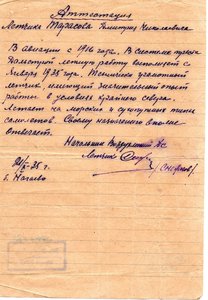 Аттестация
Летчика Тарасова Дмитрия Николаевича
В авиации с 1916 года. В системе треста
Дальстрой летную работу выполняет с
Января 1935 года. Технически грамотный
летчик, имеющий значительный опыт
работы в условиях крайнего севера.
Летает на морских и сухопутных типах
самолетов. Своему назначению вполне
отвечает.
Начальник Воздушной
Летчик
35 г.
б. Нагаево